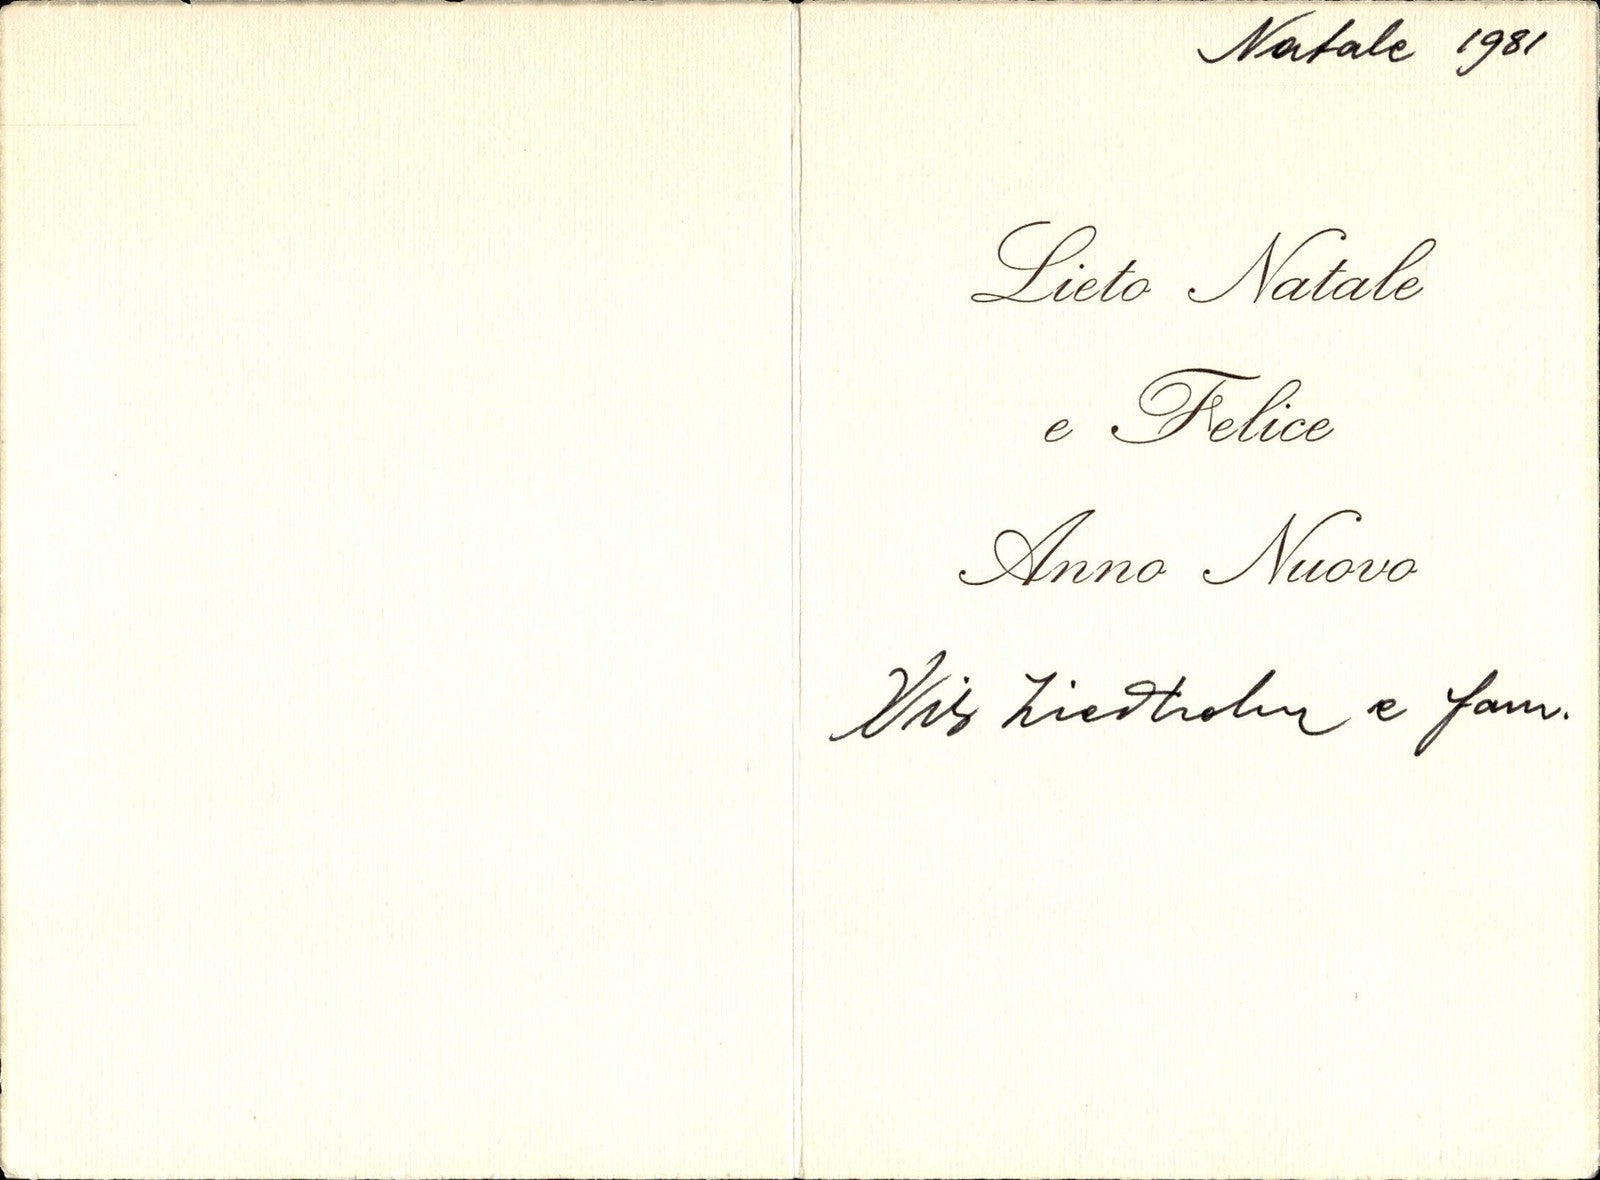 Natale 1981
Lieto Natale
e Felice
Anno Nuovo
Nils Liedholm e fam.